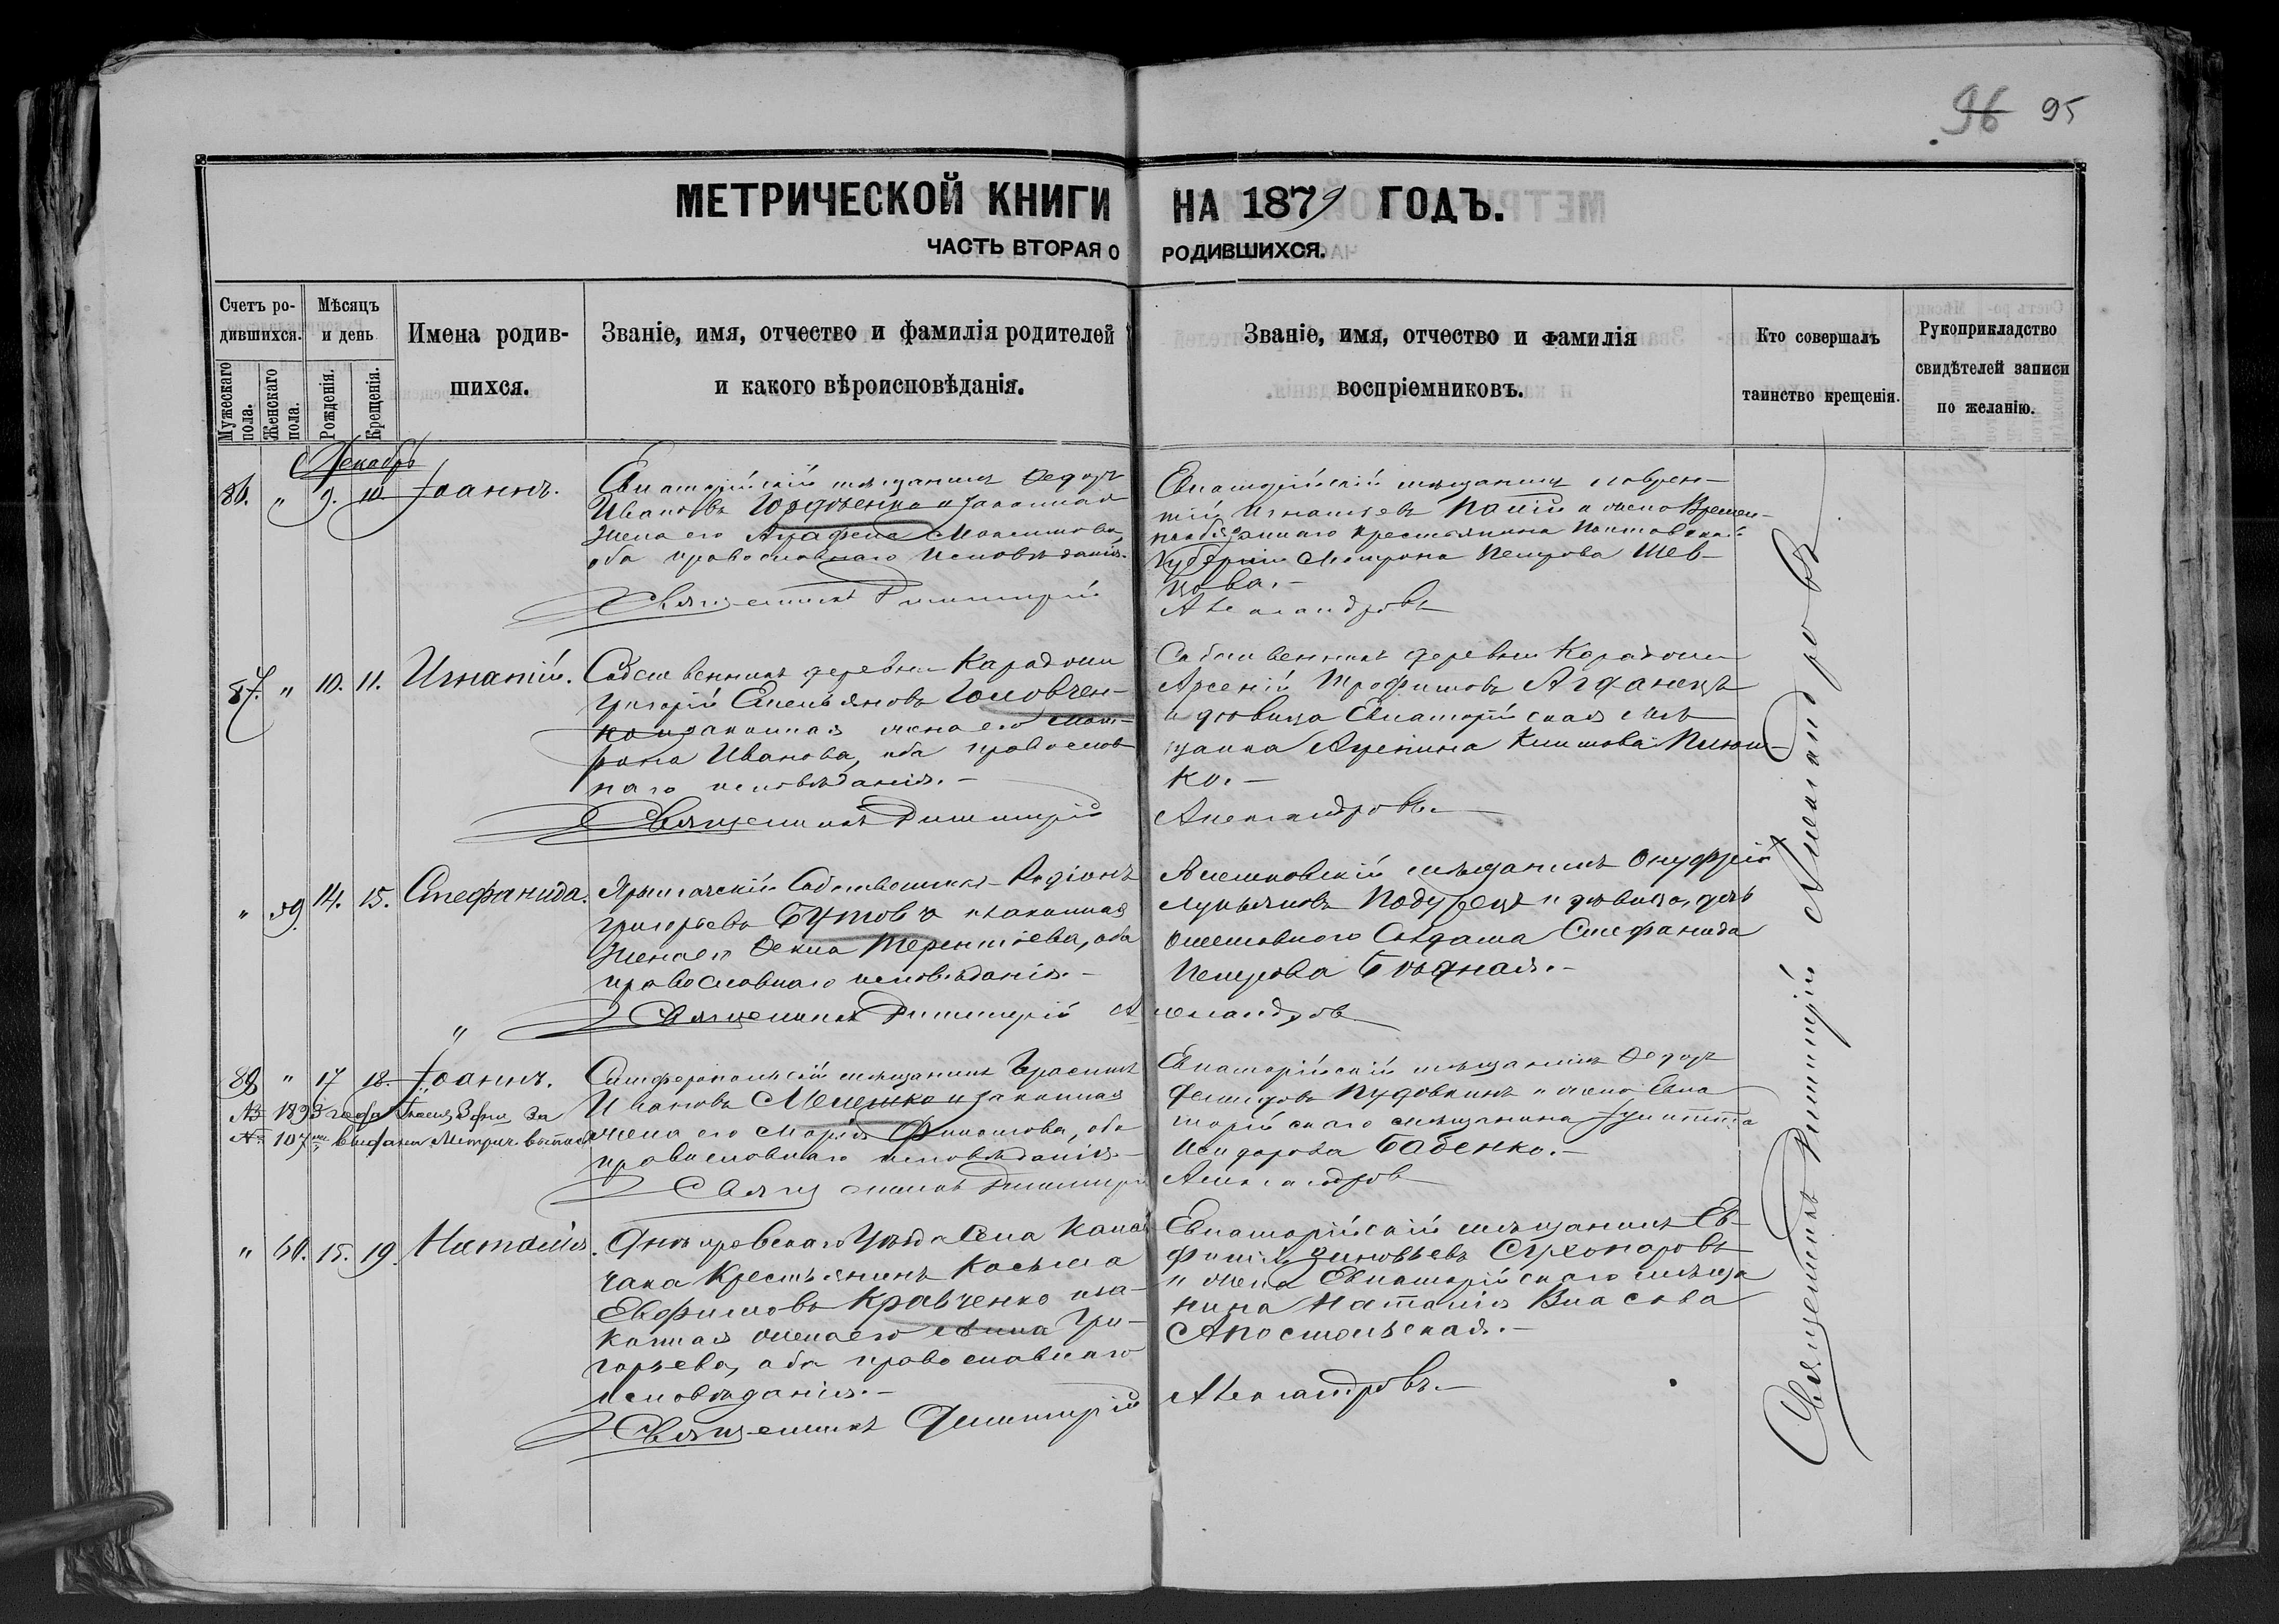 96 95
МЕТРИЧЕСКОЙ КНИГИ НА 1879 ГОДЪ.
ЧАСТЬ ВТОРАЯ О РОДИВШИХСЯ.
Счетъ ро-
дившихся.
Мужескаго пола.
Женскаго пола.
Мѣсяцъ
и день
Рожденія.
Крещенія.
Имена родив-
шихся.
Званіе, имя, отчество и фамилія родителей
и какого вѣроисповѣданія.
Званіе, имя, отчество и фамилія
воспріемниковъ.
Кто совершалъ
таинство крещенія.
Рукоприкладство
свидѣтелей записи
по желанію.
Декабрь
86. " 9. 10 Іоаннъ.
Евпаторійскій мѣщанинъ Ѳедоръ
Ивановъ Гордіенко и законная
жена его Агафена Максимова,
оба православнаго исповѣданія.
Священникъ Димитрій
Евпаторійскій мѣщанинъ Лаврен-
тій Игнатьевъ и жена Времен-
нообязаннаго крестьянина Полтавской
Губерніи Матрона Петрова Шев-
цова.-
Александровъ
87. " 10. 11. Игнатій.
Собственникъ деревни Караджи
Григорій Емельяновъ Головчен-
ко и законная жена его Мат-
рона Иванова, оба православ-
наго исповѣданія.-
Священникъ Димитрій
Собственникъ деревни Караджи
Арсеній Трофимовъ
и дѣвица Евпаторійская мѣ-
щанка Климова
ко.-
Александровъ.
" 59. 14. 15. Стефанида.
Собственникъ Родіонъ
Григорьевъ Бутовъ и законная
жена его Ѳекла Терентіева, оба
православнаго исповѣданія.-
Священникъ Димитрій Александровъ
Алешковскій мѣщанинъ Онуфрій
Лукьяновъ и дѣвица, дочь
Солдата Стефанида
Петрова Бѣдная.-
88 " 17 18. Іоаннъ.
Симферопольскій мѣщанинъ Герасимъ
Ивановъ Мелешко и законная
жена его Марія Филипова, оба
православнаго исповѣданія.-
Священникъ Димитрій
Евпаторійскій мѣщанинъ Ѳедоръ
Демидовъ Пудовкинъ и жена Евпа
торійскаго мѣщанина
Исидорова Бабенко.-
Александровъ
№ 1893 года за
№ 107 выдана Метрич. выпись
" 60. 15. 19. Наталія.
Днѣпровскаго Уѣзда Села
чака Крестьянинъ Косьма
Евфимовъ Кравченко и за-
конная жена его Анна Гри-
горьева, оба православнаго
исповѣданія.-
Священникъ Димитрій
Евпаторійскій мѣщанинъ Ев-
фимій Зиновьевъ
и жена Евпаторійскаго мѣща
нина Наталія Власова
Апостольская.-
Александровъ.-
Священникъ Димитрій Александровъ